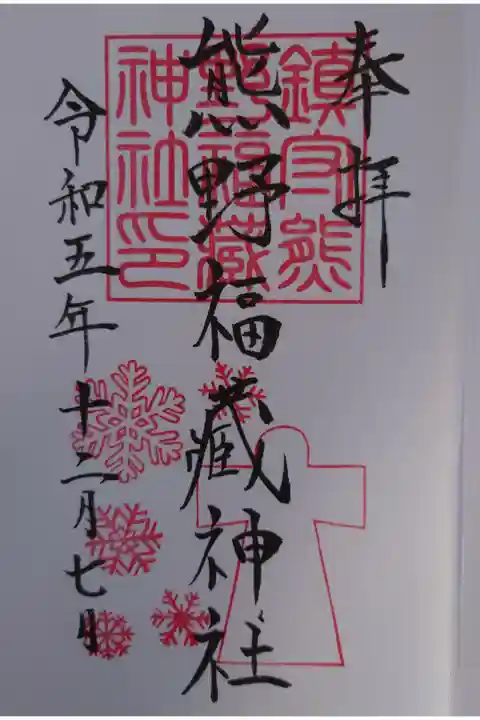 奉拝
熊野福藏神社
令和五年十二月七日
鎮守熊
野福藏
神社印